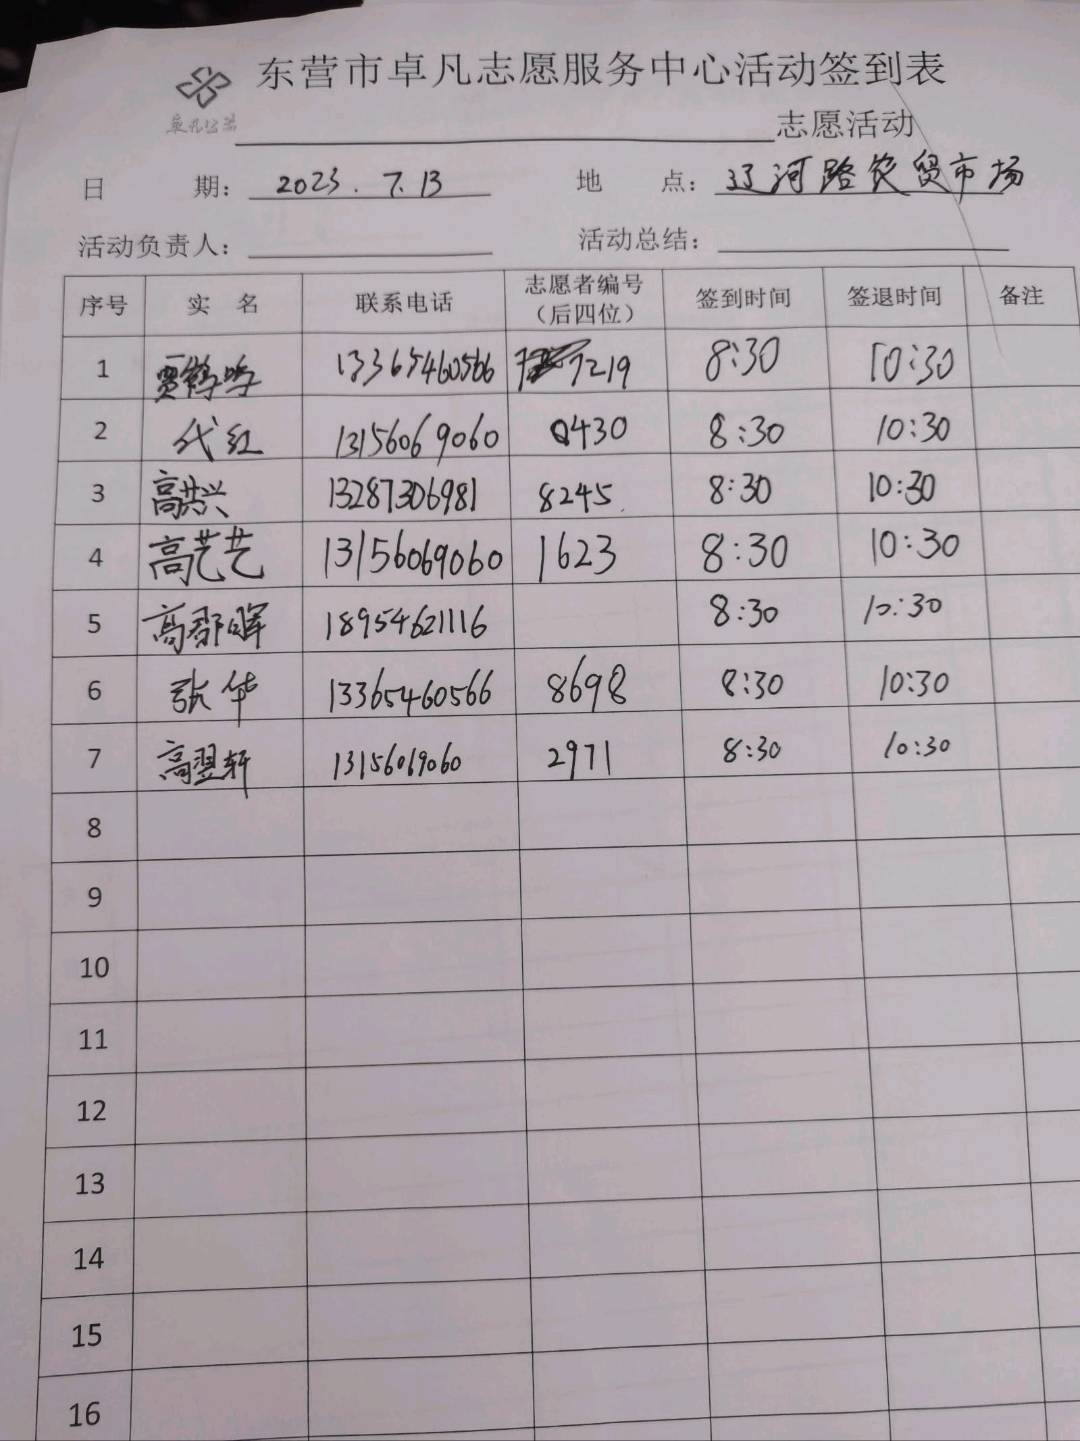 东营市卓凡志愿服务中心活动签到表
卓凡公益
志愿活动
日 期: 2023.7.13 地 点: 辽河路农贸市场
活动负责人: 活动总结:
序号 实 名 联系电话 志愿者编号(后四位) 签到时间 签退时间 备注
1 贾鹤鸣 13365460566 7219 8:30 10:30
2 代红 13156069060 0430 8:30 10:30
3 高洪兴 13287306981 8245 8:30 10:30
4 高艺艺 13156069060 1623 8:30 10:30
5 高郡晖 18954621116 8:30 10:30
6 张华 13365460566 8698 8:30 10:30
7 高翌轩 13156069060 2971 8:30 10:30
8
9
10
11
12
13
14
15
16